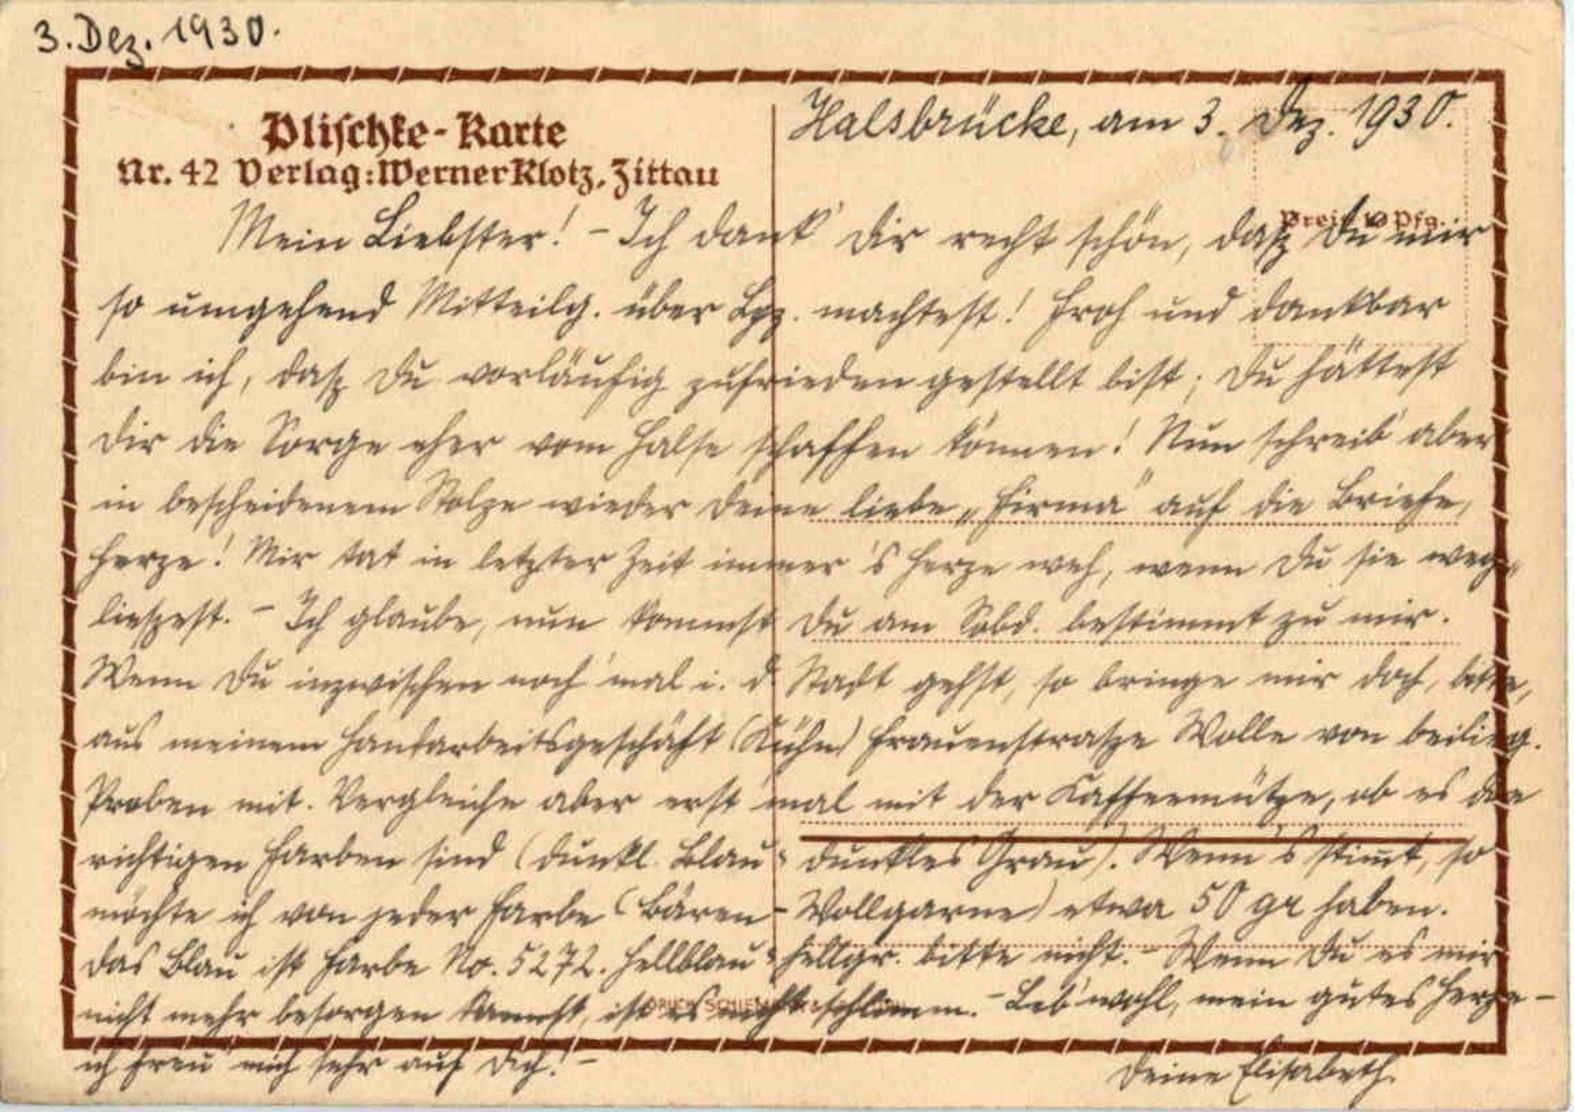 3. Dez. 1930.
Plischke-Karte
Nr. 42 Verlag: Werner Klotz, Zittau
Preis 10 Pfg.
Halsbrücke, am 3. Dez. 1930.
Mein Liebster! – Ich dank' Dir recht schön, daß Du mir
so umgehend Mitteilg. über Lpz. machtest! Froh und dankbar
bin ich, daß Du vorläufig zufrieden gestellt bist; Du hättest
Dir die Sorge eher vom Halse schaffen können! Nun schreib' aber
in bescheidenem Stolze wieder Deine liebe „Firma" auf die Briefe,
Herze! Mir tat in letzter Zeit immer 's Herze weh, wenn Du sie weg-
ließest. – Ich glaube, nun kommst Du am Sobd. bestimmt zu mir.
Wenn Du inzwischen noch 'mal i. d. Stadt gehst, so bringe mir doch, bitte,
aus meinem Handarbeitsgeschäft (Kühn) Frauenstraße Wolle von beilieg.
Proben mit. Vergleiche aber erst 'mal mit der Kaffeemütze, ob es die
richtigen Farben sind (dunkl. Blau u. dunkles Grau). Wenn's stimmt, so
möchte ich von jeder Farbe (Bären-Wollgarne) etwa 50 gr haben.
Das Blau ist Farbe No. 5272. Hellblau u. hellgr. bitte nicht. – Wenn Du es mir
nicht mehr besorgen kannst, ist es nicht schlimm. – Leb' wohl, mein gutes Herze –
ich freu' mich sehr auf Dich! –
Deine Elisabeth.
DRUCK